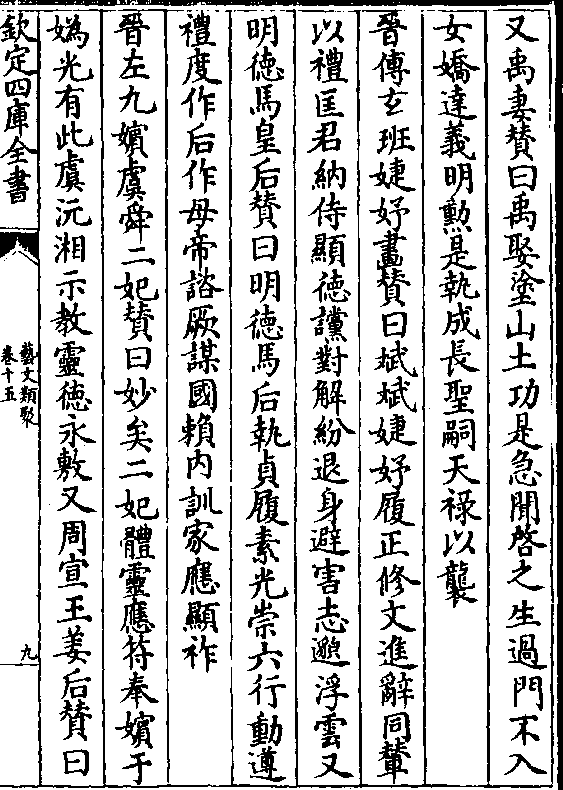 又禹妻賛曰禹娶塗山土功是急聞啓之生過門不入
女嬌達義明勲是執成長聖嗣天禄以襲
晉傅玄班婕妤畫賛曰斌斌婕妤履正修文進辭同輦
以禮匡君納侍顯德讜對解紛退身避害志邈浮雲又
明徳馬皇后賛曰明徳馬后執貞履素光崇六行動遵
禮度作后作母帝諮厥謀國賴内訓家應顯祚
晉左九嬪虞舜二妃賛曰妙矣二妃體靈應符奉嬪于
媯光有此虞沅湘示教靈徳永敷又周宣王姜后賛曰
欽定四庫全書
藝文類聚
卷十五
九